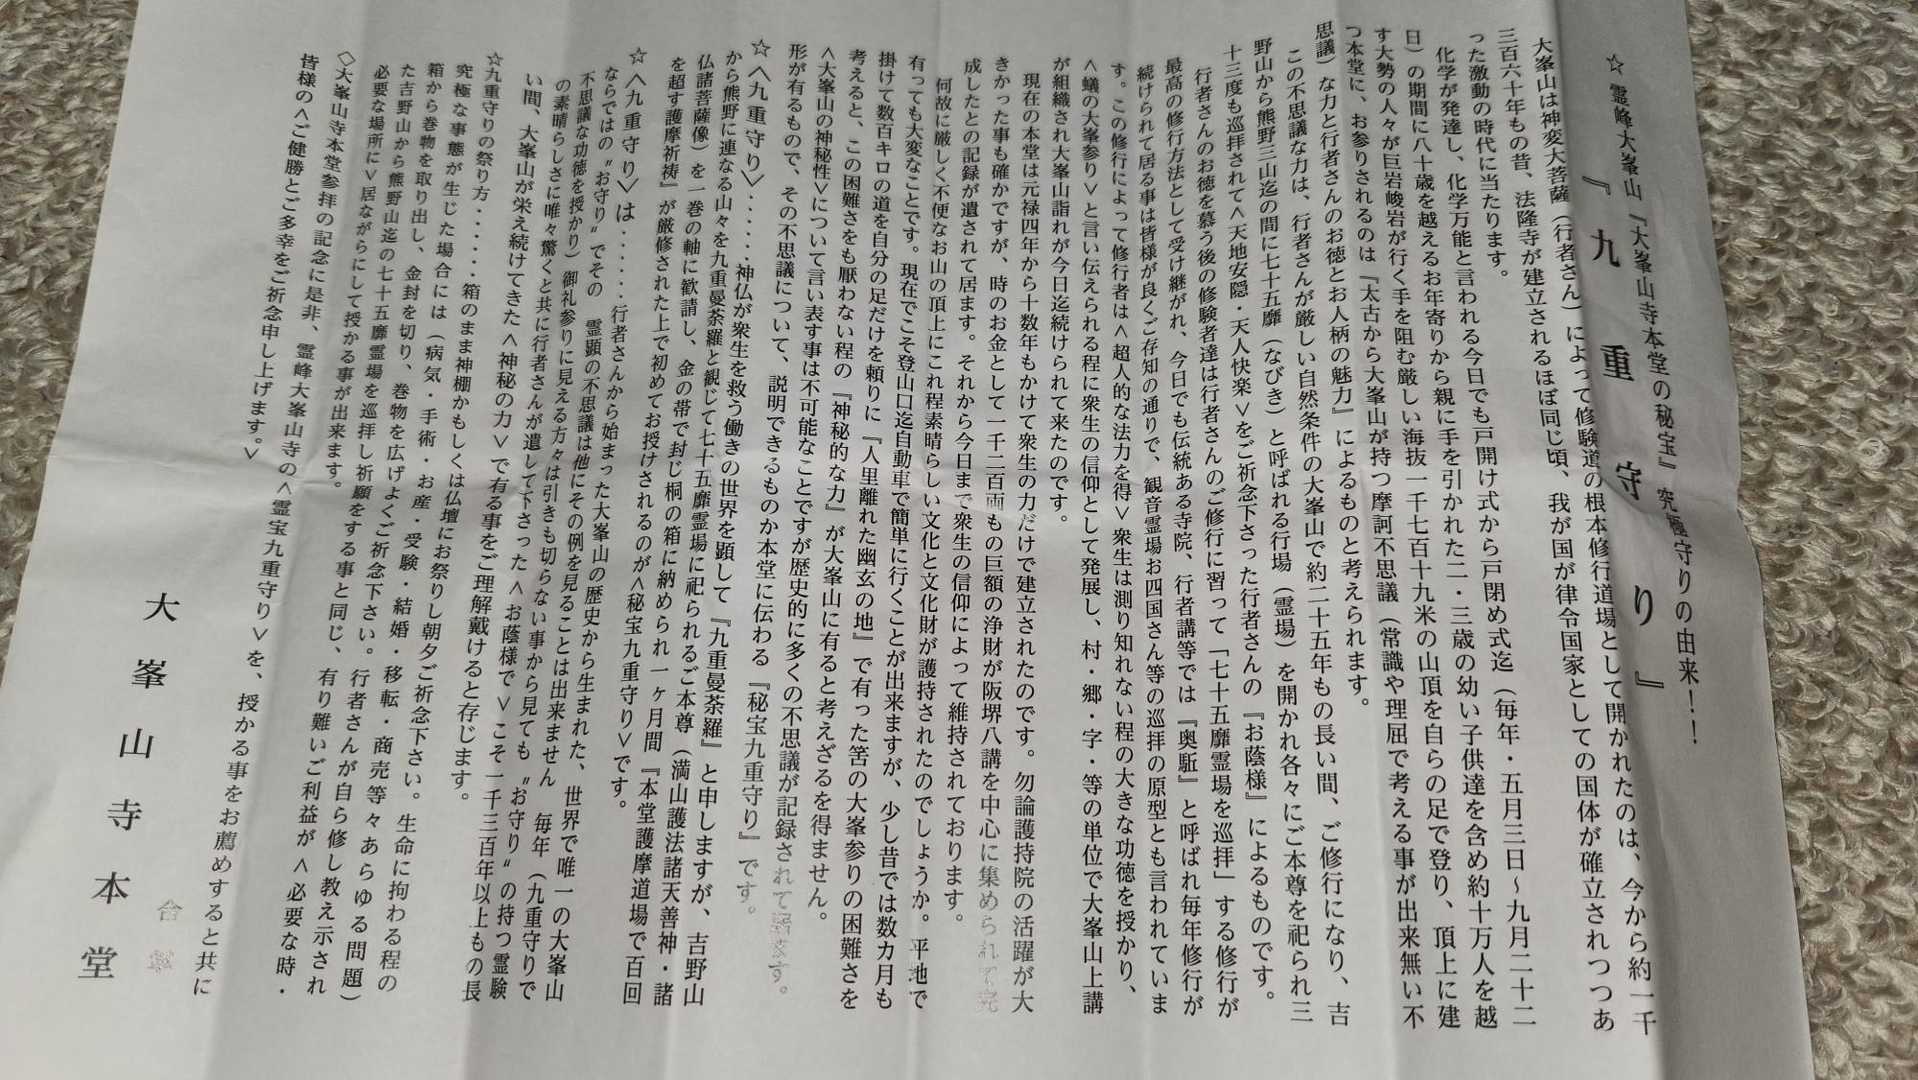 ☆霊峰大峯山『大峯山寺本堂の秘宝』究極守りの由来!!
『九重守り』
大峯山は神変大菩薩（行者さん）によって修験道の根本修行道場として開かれたのは、今から約一千
三百六十年もの昔、法隆寺が建立されるほぼ同じ頃、我が国が律令国家としての国体が確立されつつあ
った激動の時代に当たります。
化学が発達し、化学万能と言われる今日でも戸開け式から戸閉め式迄（毎年・五月三日～九月二十二
日）の期間に八十歳を越えるお年寄りから親に手を引かれた二・三歳の幼い子供達を含め約十万人を越
す大勢の人々が巨岩峻岩が行く手を阻む厳しい海抜一千七百十九米の山頂を自らの足で登り、頂上に建
つ本堂に、お参りされるのは『太古から大峯山が持つ摩訶不思議（常識や理屈で考える事が出来無い不
思議）な力と行者さんのお徳とお人柄の魅力』によるものと考えられます。
この不思議な力は、行者さんが厳しい自然条件の大峯山で約二十五年もの長い間、ご修行になり、吉
野山から熊野三山迄の間に七十五靡（なびき）と呼ばれる行場（霊場）を開かれ各々にご本尊を祀られ三
十三度も巡拝されて＜天地安隠・天人快楽＞をご祈念下さった行者さんの『お蔭様』によるものです。
行者さんのお徳を慕う後の修験者達は行者さんのご修行に習って「七十五靡霊場を巡拝」する修行が
最高の修行方法として受け継がれ、今日でも伝統ある寺院、行者講等では『奥駈』と呼ばれ毎年修行が
続けられて居る事は皆様が良くご存知の通りで、観音霊場お四国さん等の巡拝の原型とも言われていま
す。この修行によって修行者は＜超人的な法力を得＞衆生は測り知れない程の大きな功徳を授かり、
＜蟻の大峯参り＞と言い伝えられる程に衆生の信仰として発展し、村・郷・字・等の単位で大峯山上講
が組織され大峯山詣れが今日迄続けられて来たのです。
現在の本堂は元禄四年から十数年もかけて衆生の力だけで建立されたのです。勿論護持院の活躍が大
きかった事も確かですが、時のお金として一千二百両もの巨額の浄財が阪堺八講を中心に集められて完
成したとの記録が遺されて居ます。それから今日まで衆生の信仰によって維持されております。
何故に厳しく不便なお山の頂上にこれ程素晴らしい文化と文化財が護持されたのでしょうか。平地で
有っても大変なことです。現在でこそ登山口迄自動車で簡単に行くことが出来ますが、少し昔では数カ月も
掛けて数百キロの道を自分の足だけを頼りに『人里離れた幽玄の地』で有った筈の大峯参りの困難さを
考えると、この困難さをも厭わない程の『神秘的な力』が大峯山に有ると考えざるを得ません。
＜大峯山の神秘性＞について言い表す事は不可能なことですが歴史的に多くの不思議が記録されて居ます。
形が有るもので、その不思議について、説明できるものか本堂に伝わる『秘宝九重守り』です。
☆〈九重守り〉・・・・神仏が衆生を救う働きの世界を顕して『九重曼荼羅』と申しますが、吉野山
から熊野に連なる山々を九重曼荼羅と観じて七十五靡霊場に祀られるご本尊（満山護法諸天善神・諸
仏諸菩薩像）を一巻の軸に歓請し、金の帯で封じ桐の箱に納められ一ヶ月間『本堂護摩道場で百回
を超す護摩祈祷』が厳修された上で初めてお授けされるのが＜秘宝九重守り＞です。
☆〈九重守り〉は・・・・・・行者さんから始まった大峯山の歴史から生まれた、世界で唯一の大峯山
ならではの〝お守り〟でその 霊顕の不思議は他にその例を見ることは出来ません 毎年（九重守りで
不思議な功徳を授かり）御礼参りに見える方々は引きも切らない事から見ても〝お守り〟の持つ霊験
の素晴らしさに唯々驚くと共に行者さんが遺して下さった＜お蔭様で＞こそ一千三百年以上もの長
い間、大峯山が栄え続けてきた＜神秘の力＞で有る事をご理解戴けると存じます。
☆九重守りの祭り方・・・・・箱のまま神棚かもしくは仏壇にお祭りし朝夕ご祈念下さい。生命に拘わる程の
究極な事態が生じた場合には（病気・手術・お産・受験・結婚・移転・商売等々あらゆる問題）
箱から巻物を取り出し、金封を切り、巻物を広げよくご祈念下さい。行者さんが自ら修し教え示され
た吉野山から熊野山迄の七十五靡霊場を巡拝し祈願をする事と同じ、有り難いご利益が＜必要な時・
必要な場所に＞居ながらにして授かる事が出来ます。
◇大峯山寺本堂参拝の記念に是非、霊峰大峯山寺の＜霊宝九重守り＞を、授かる事をお薦めすると共に
皆様の＜ご健勝とご多幸をご祈念申し上げます。＞
大峯山寺本堂